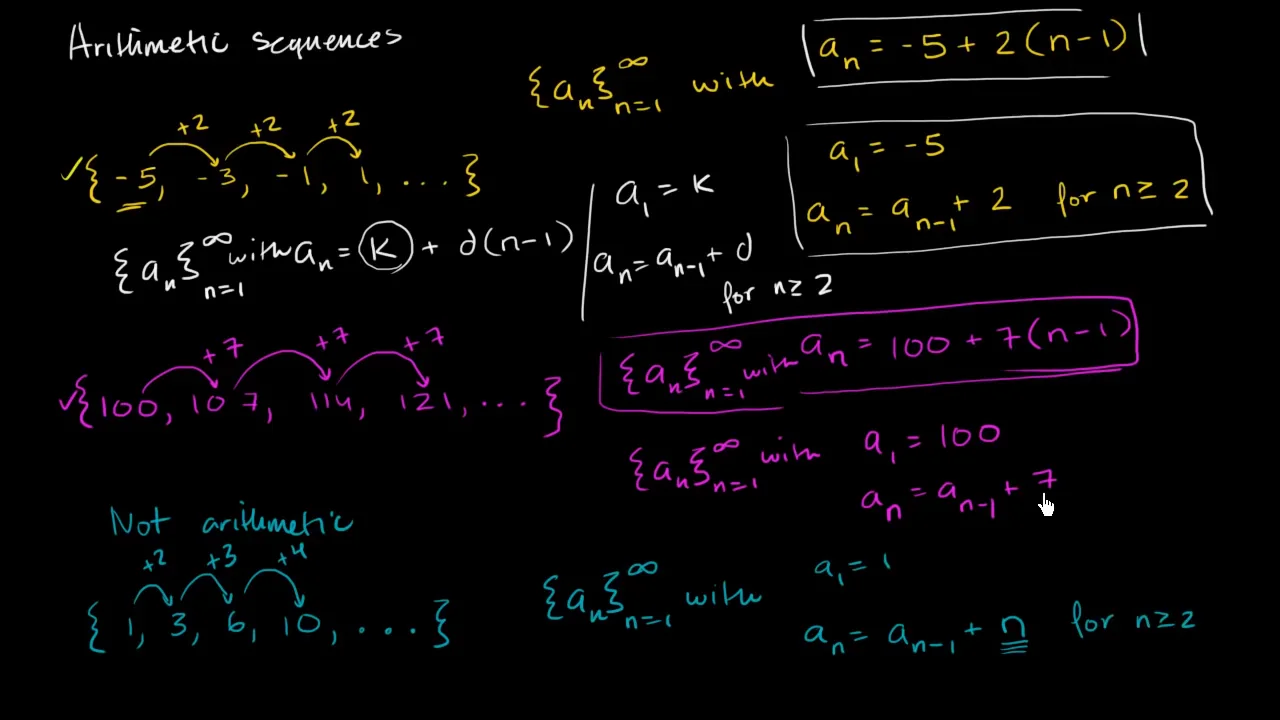 Arithmetic sequences
{aₙ}ₙ₌₁^∞ with aₙ = -5 + 2(n-1)
+2 +2 +2
✓{-5, -3, -1, 1, ....}
a₁ = -5
aₙ = aₙ₋₁ + 2 for n ≥ 2
{aₙ}ₙ₌₁^∞ with aₙ = K + d(n-1)
a₁ = K
aₙ = aₙ₋₁ + d
for n ≥ 2
+7 +7 +7
✓{100, 107, 114, 121, ...}
{aₙ}ₙ₌₁^∞ with aₙ = 100 + 7(n-1)
{aₙ}ₙ₌₁^∞ with a₁ = 100
aₙ = aₙ₋₁ + 7
Not arithmetic
+2 +3 +4
{1, 3, 6, 10, ....}
{aₙ}ₙ₌₁^∞ with a₁ = 1
aₙ = aₙ₋₁ + n for n ≥ 2